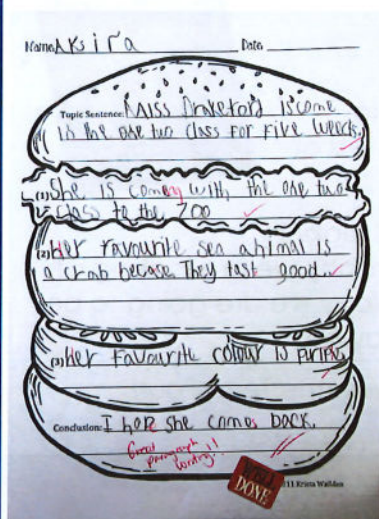 Name Aksira Date
Topic Sentence: Miss Draketord is come
in the one two class for five weecks.
(1) She is comeing with the one two
class to the zoo
(2) Her favourite sea ahimal is
a crab becase They tast good.
(3) Her favourite colour is purple
Conclusion: I hope she comes back.
Great
paragraph
writing!!
WELL
DONE
2011 Krista Wallden